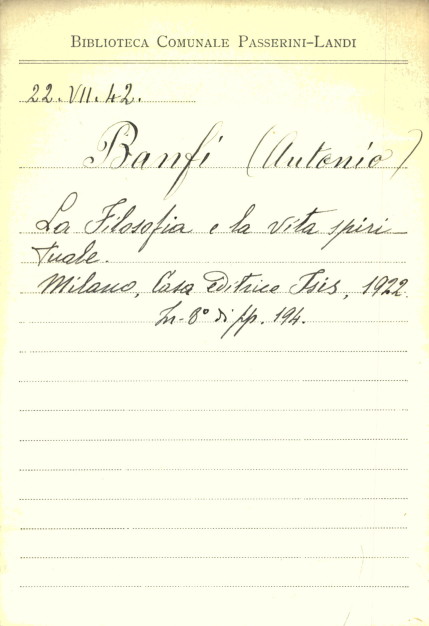 BIBLIOTECA COMUNALE PASSERINI-LANDI
22. VII. 42.
Banfi (Antonio)
La Filosofia e la vita spiri-
tuale.
Milano, Casa Editrice Isis, 1922.
In-8° di pp. 194.